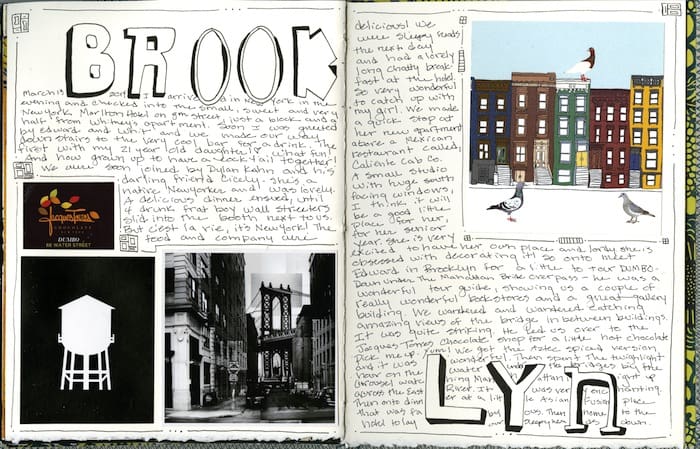 BROOK
March 13 2015 I arrived in New York in the
evening and checked into the small, sweet and very
New York, Marlton Hotel on 8th street, just a block and a
half from Whitney's apartment. Soon I was greeted
by Edward and Whit and we made our way
down stairs to the very cool bar for a drink. The
first with my 21 year old daughter! what fun,
And how grown up to have a cocktail together.
We were soon joined by Dylan Kahn and his
darling friend Cicely. She's a
native New Yorker and was lovely.
A delicious dinner ensued, until
4 drunk frat boy wall streeters
slid into the booth next to us.
But c'est la vie, it's New York! The
food and company were
Jacques Torres
CHOCOLATE
NEW YORK
DUMBO
66 WATER STREET
delicious! We
were sleepy heads
the next day
and had a lovely
long chatty break-
fast at the hotel
so very wonderful
to catch up with
my girl. We made
a quick stop at
her new apartment
above a Mexican
restaurant called,
Caliente Cab Co.
A small studio
with huge south
facing windows,
I think it will
be a good little
place for her,
for her senior
year. She is very
excited to have her own place and lordy she is
obsessed with decorating it! So onto meet
Edward in Brooklyn for a little tour DUMBO-
Down Under The Manhattan Bridge Overpass - he was a
wonderful tour guide, showing us a couple of
really wonderful bookstores and a great gallery
building. We wandered and wandered catching
amazing views of the bridge in between buildings.
It was quite striking. He led us over to the
Jacques Torres Chocolate shop for a little hot chocolate
Pick me up. Yum! We got the Aztec spiced version
and it was wonderful. Then spent the twilight
hour on the water
carousel watching Manhattan light up
across the East River. It was very enchanting.
Then onto dinner at a little Asian Fusion place
that was fa
hotel to lay our sleepy heads down.
LYn